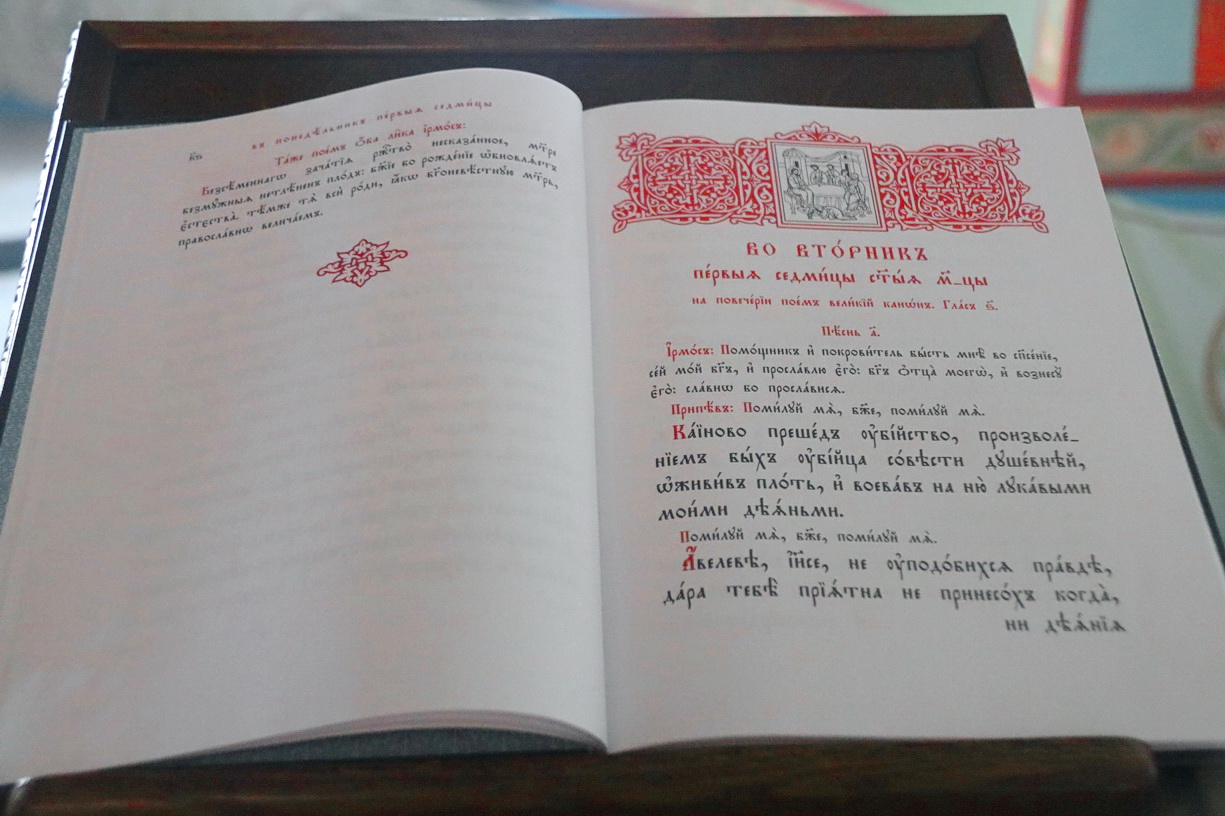 въ понедѣ́льникъ пе́рвыѧ седми́цы
к҃в
Та́же пое́мъ ѻ҆́ба ли́ка і҆рмо́съ:
Безсѣ́меннагѡ зача́тїѧ ржⷭ҇тво̀ несказа́нное, мт҃ре
безмꙋ́жныѧ нетлѣ́ненъ пло́дъ: бж҃їе бо рожде́нїе ѡ҆бновлѧ́етъ
є҆стества̀. тѣ́мже тѧ̀ всѝ ро́ди, ꙗ҆́кѡ бг҃оневѣ́стнꙋю мт҃рь,
правосла́внѡ велича́емъ.
ВО ВТО́РНИКЪ
пе́рвыѧ седми́цы ст҃ы́ѧ м҃-цы
на повече́рїи пое́мъ вели́кїй канѡ́нъ. Гла́съ ѕ҃.
Пѣ́снь а҃.
І҆рмо́съ: Помо́щникъ и҆ покрови́тель бы́сть мнѣ̀ во сп҃се́нїе,
се́й мо́й бг҃ъ, и҆ просла́влю є҆го̀: бг҃ъ ѻ҆тца̀ моегѡ̀, и҆ вознесꙋ̀
є҆го̀: сла́внѡ бо просла́висѧ.
Припѣ́въ: Поми́лꙋй мѧ̀, бж҃е, поми́лꙋй мѧ̀.
Ка́їново преше́дъ ᲂу҆бі́йство, произволе́-
нїемъ бы́хъ ᲂу҆бі́йца со́вѣсти дꙋше́внѣй,
ѡ҆живи́въ пло́ть, и҆ воева́въ на ню̀ лꙋка́выми
мои́ми дѣѧ́ньми.
Поми́лꙋй мѧ̀, бж҃е, поми́лꙋй мѧ̀.
А҆́велевѣ, і҆и҃се, не ᲂу҆подо́бихсѧ пра́вдѣ,
да́ра тебѣ̀ прїѧ́тна не принесо́хъ когда̀,
ни дѣѧ́нїѧ